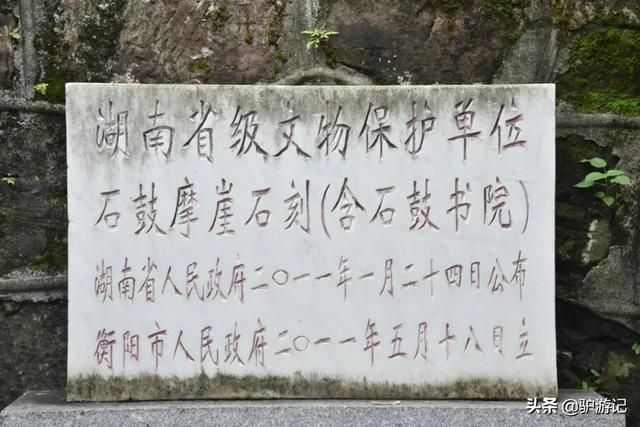 湖南省级文物保护单位
石鼓摩崖石刻(含石鼓书院)
湖南省人民政府二〇一一年一月二十四日公布
衡阳市人民政府二〇一一年五月十八日立
头条 @驴游记